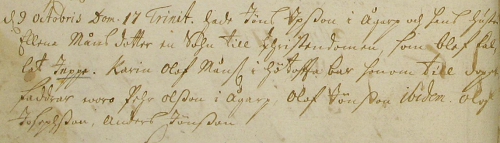 d. 9 octobris Dom. 17 Trinit. hade Jöns Ipsson i Ågarp och hans hustr
Ellena Måns dotter en Sohn till Christendomen, som blef kal
lat Jeppe. Karin Olof Måns i bar honom till dop
faddrar woro Pehr olsson i Ågarp. Olof Jönsson ibidem. Olof
Anders Jönsson